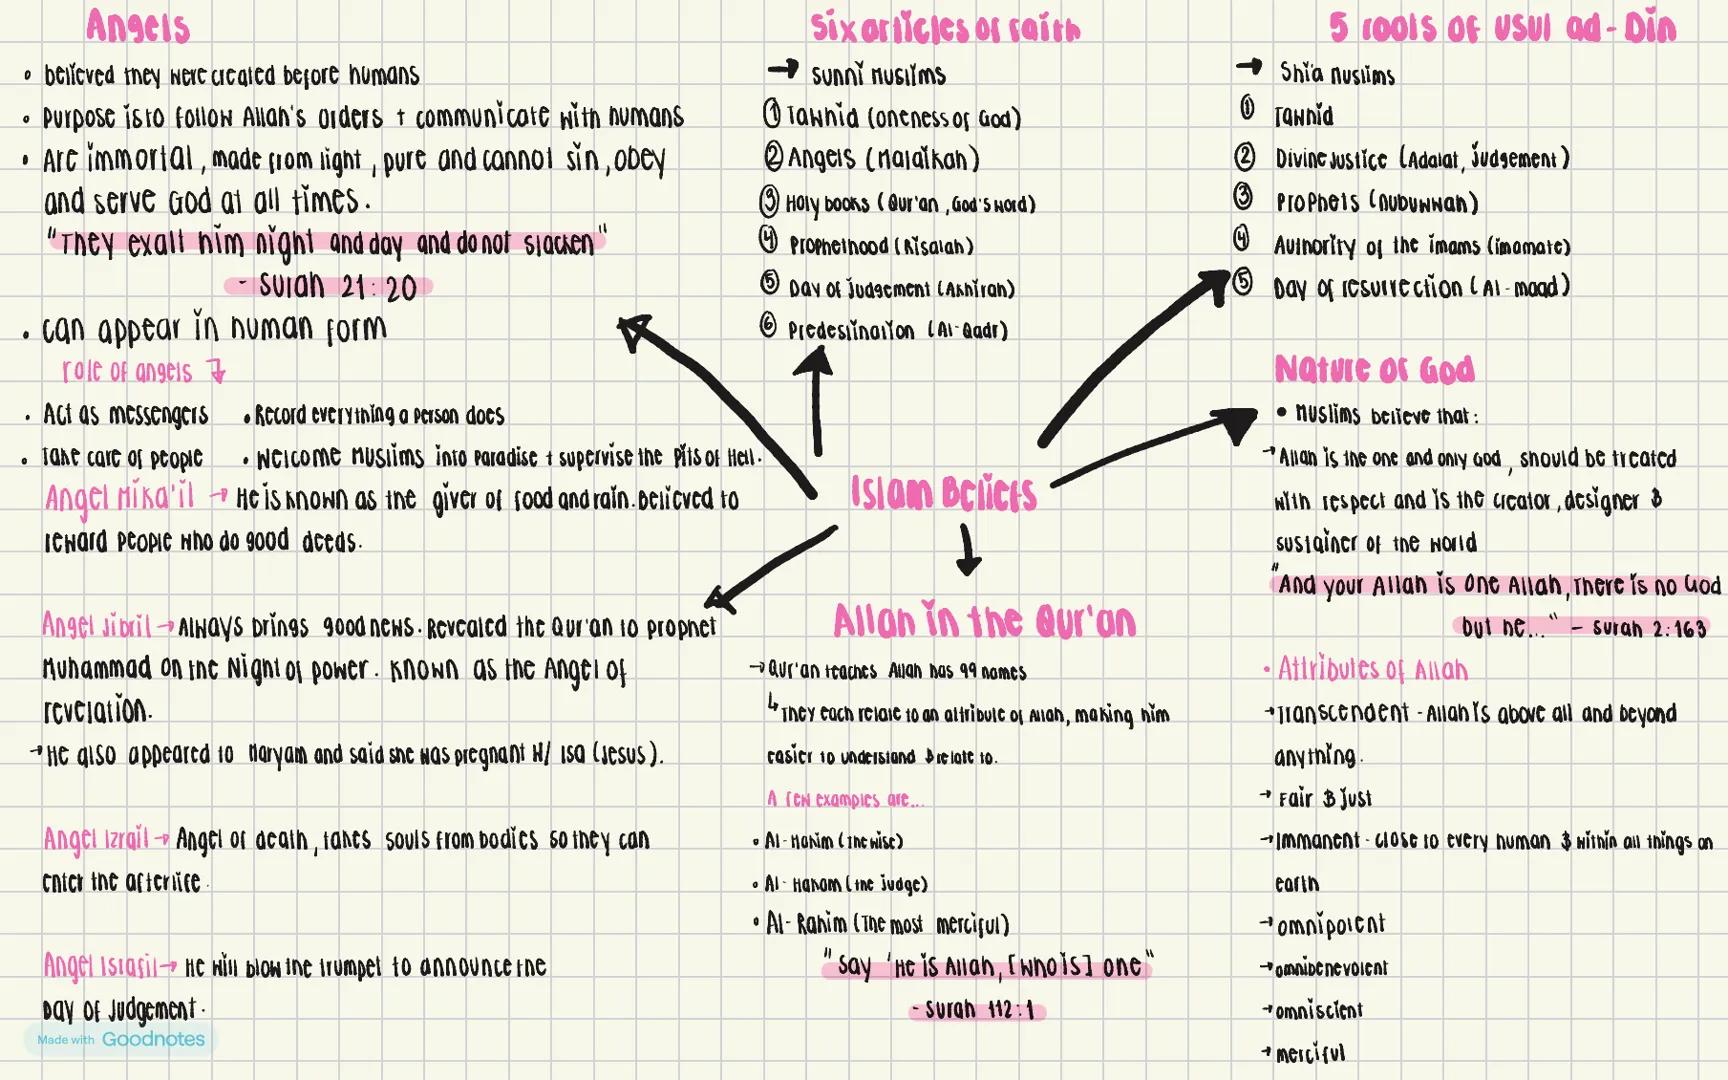 Angels
• believed they were created before humans
• Purpose is to follow Allah's orders + communicate with humans
• Are immortal, made from light, pure and cannot sin, obey
and serve God at all times.
"They exalt him night and day and do not slacken"
- Surah 21:20
• can appear in human form
role of angels ↴
• Act as messengers • Record everything a person does
• Take care of people • Welcome Muslims into Paradise + supervise the Pits of Hell.
Angel Mika'il → He is known as the giver of food and rain. Believed to
reward people who do good deeds.
Angel Jibril → Always brings good news. Revealed the Qur'an to prophet
Muhammad on the Night of power. Known as the Angel of
revelation.
→ He also appeared to Maryam and said she was pregnant w/ Isa (Jesus).
Angel Izrail → Angel of death, takes souls from bodies so they can
enter the afterlife.
Angel Israfil → He will blow the trumpet to announce the
Day of Judgement.
Made with Goodnotes
Six articles of faith
→ Sunni Muslims
① Tawhid (oneness of God)
② Angels (Malaikah)
③ Holy books (Qur'an, God's word)
④ Prophethood (Risalah)
⑤ Day of judgement (Akhirah)
⑥ Predestination (Al-Qadr)
Islam Beliefs
Allah in the Qur'an
→ Qur'an teaches Allah has 99 names
↳ They each relate to an attribute of Allah, making him
easier to understand & relate to.
A few examples are...
• Al-Hakim (The wise)
• Al-Hakam (the judge)
• Al-Rahim (The most merciful)
"Say 'He is Allah, [who is] one"
- Surah 112:1
5 roots of usul ad-Din
→ Shi'a Muslims
① Tawhid
② Divine justice (Adalat, judgement)
③ Prophets (Nubuwwah)
④ Authority of the imams (imamate)
⑤ Day of resurrection (Al-maad)
Nature of God
• Muslims believe that:
→ Allah is the one and only God, should be treated
with respect and is the creator, designer &
sustainer of the world
"And your Allah is One Allah, There is no God
but he..." - Surah 2:163
• Attributes of Allah
→ Transcendent - Allah is above all and beyond
anything.
→ Fair & just
→ Immanent - close to every human & within all things on
earth
→ omnipotent
→ omnibenevolent
→ omniscient
→ merciful